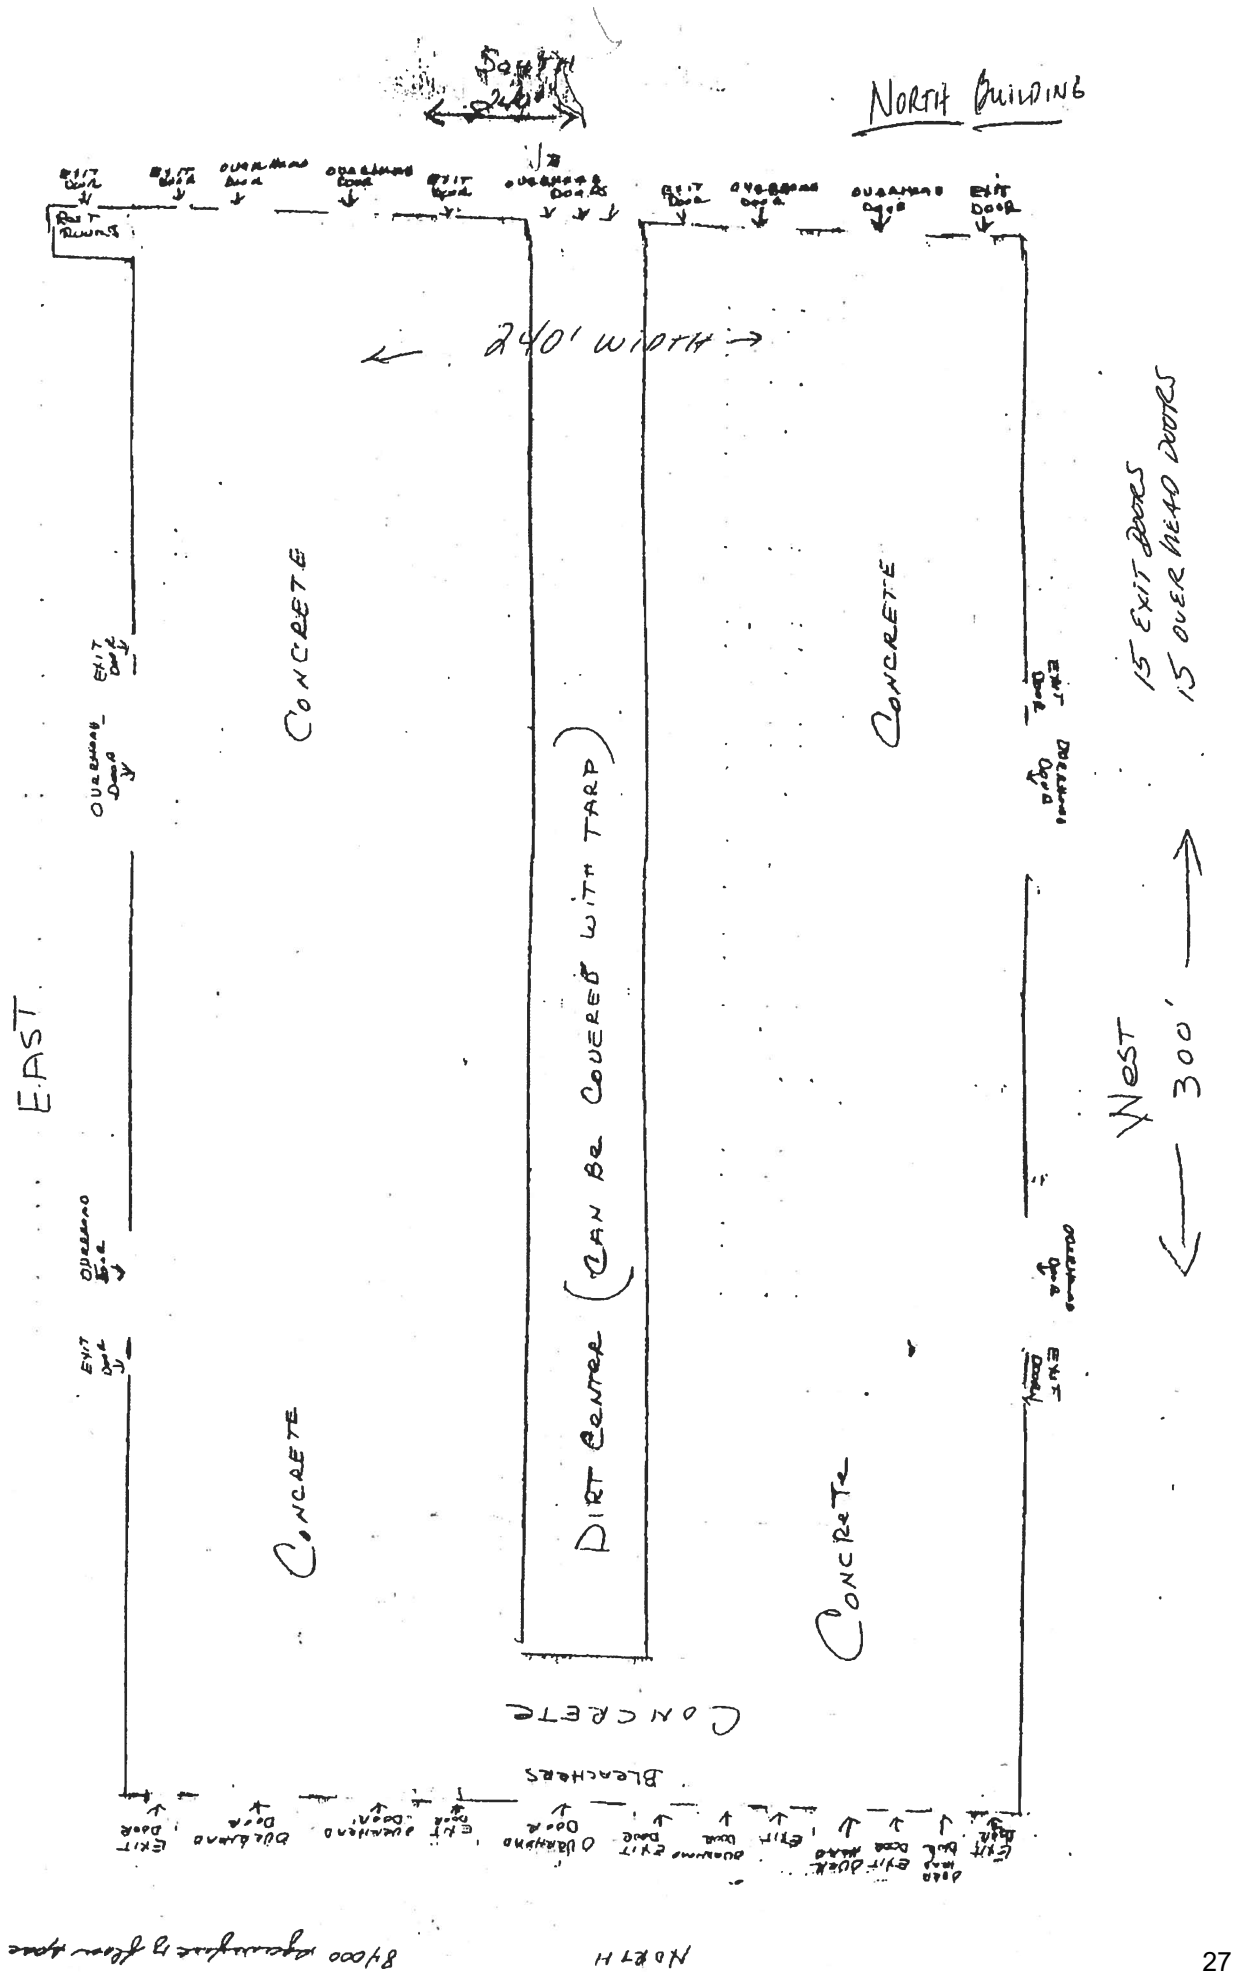 SOUTH
240'
NORTH BUILDING
EXIT
DOOR
EXIT
DOOR
OVERHEAD
DOOR
OVERHEAD
DOOR
EXIT
DOOR
OVERHEAD
DOORS
EXIT
DOOR
OVERHEAD
DOOR
OVERHEAD
DOOR
EXIT
DOOR
REST
ROOMS
240' WIDTH
15 EXIT DOORS
15 OVER HEAD DOORS
CONCRETE
CONCRETE
EXIT
DOOR
OVERHEAD
DOOR
EXIT
DOOR
OVERHEAD
DOOR
DIRT CENTER (CAN BE COVERED WITH TARP)
EAST
WEST
300'
OVERHEAD
DOOR
EXIT
DOOR
OVERHEAD
DOOR
EXIT
DOOR
CONCRETE
CONCRETE
CONCRETE
BLEACHERS
EXIT
DOOR
OVERHEAD
DOOR
OVERHEAD
DOOR
EXIT
DOOR
OVERHEAD
DOOR
EXIT
DOOR
OVERHEAD
DOOR
EXIT
OVER
HEAD
EXIT
DOOR
OVER
HEAD
DOOR
EXIT
DOOR
NORTH
of floor space
27